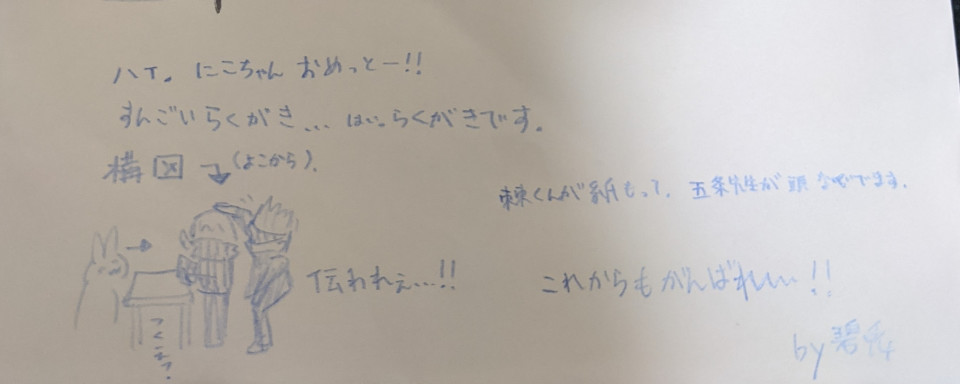 ハイ。にこちゃん おめっとー!!
すんごいらくがき... はい。らくがきです。
構図 (よこから)。
棘くんが紙もって、五条先生が頭なでてます。
つくえ?
伝われぇ...!!
これからもがんばれぃ!!
by 碧